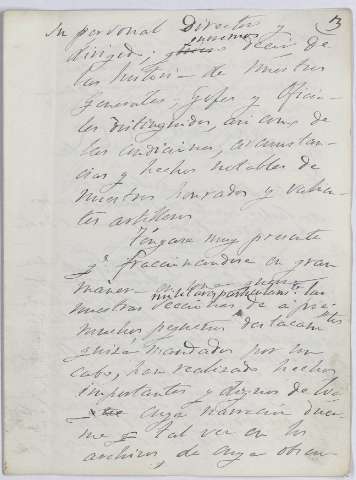 13
su personal Director y
dirigido, y decir de
las histori- de nuestros
generales, Gefes y Oficia-
les distinguidos, asi como de
las condiciones, circunstan-
cias y hechos notables de
nuestros honrados y valien-
tes artilleros
Tengase muy presente
q.e fraccionandose en gran
manera
militar, particularm.te las
nuestras secciones de a pie
muchos pequeños destacam.tos
quizá mandados por un
cabo, han realizado hechos
importantes y dignos de loa
cuya narracion duer-
me tal vez en los
archivos, de cuya obscu-